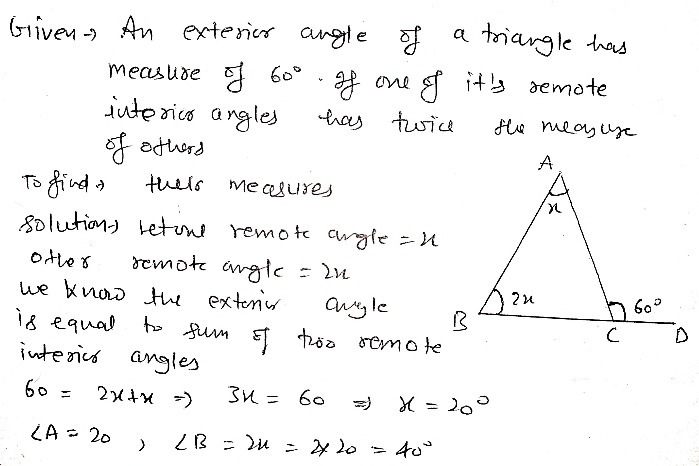 Given → An exterior angle of a triangle has
measure of 60°. If one of it's remote
interior angles has twice the measure
of others
To find → their measures
Solution → Let one remote angle = x
other remote angle = 2x
we know the exterior angle
is equal to sum of two remote
interior angles
60 = 2x+x => 3x = 60 => x = 20°
∠A = 20 , ∠B = 2x = 2x20 = 40°
A
x
B
2x
60°
C
D